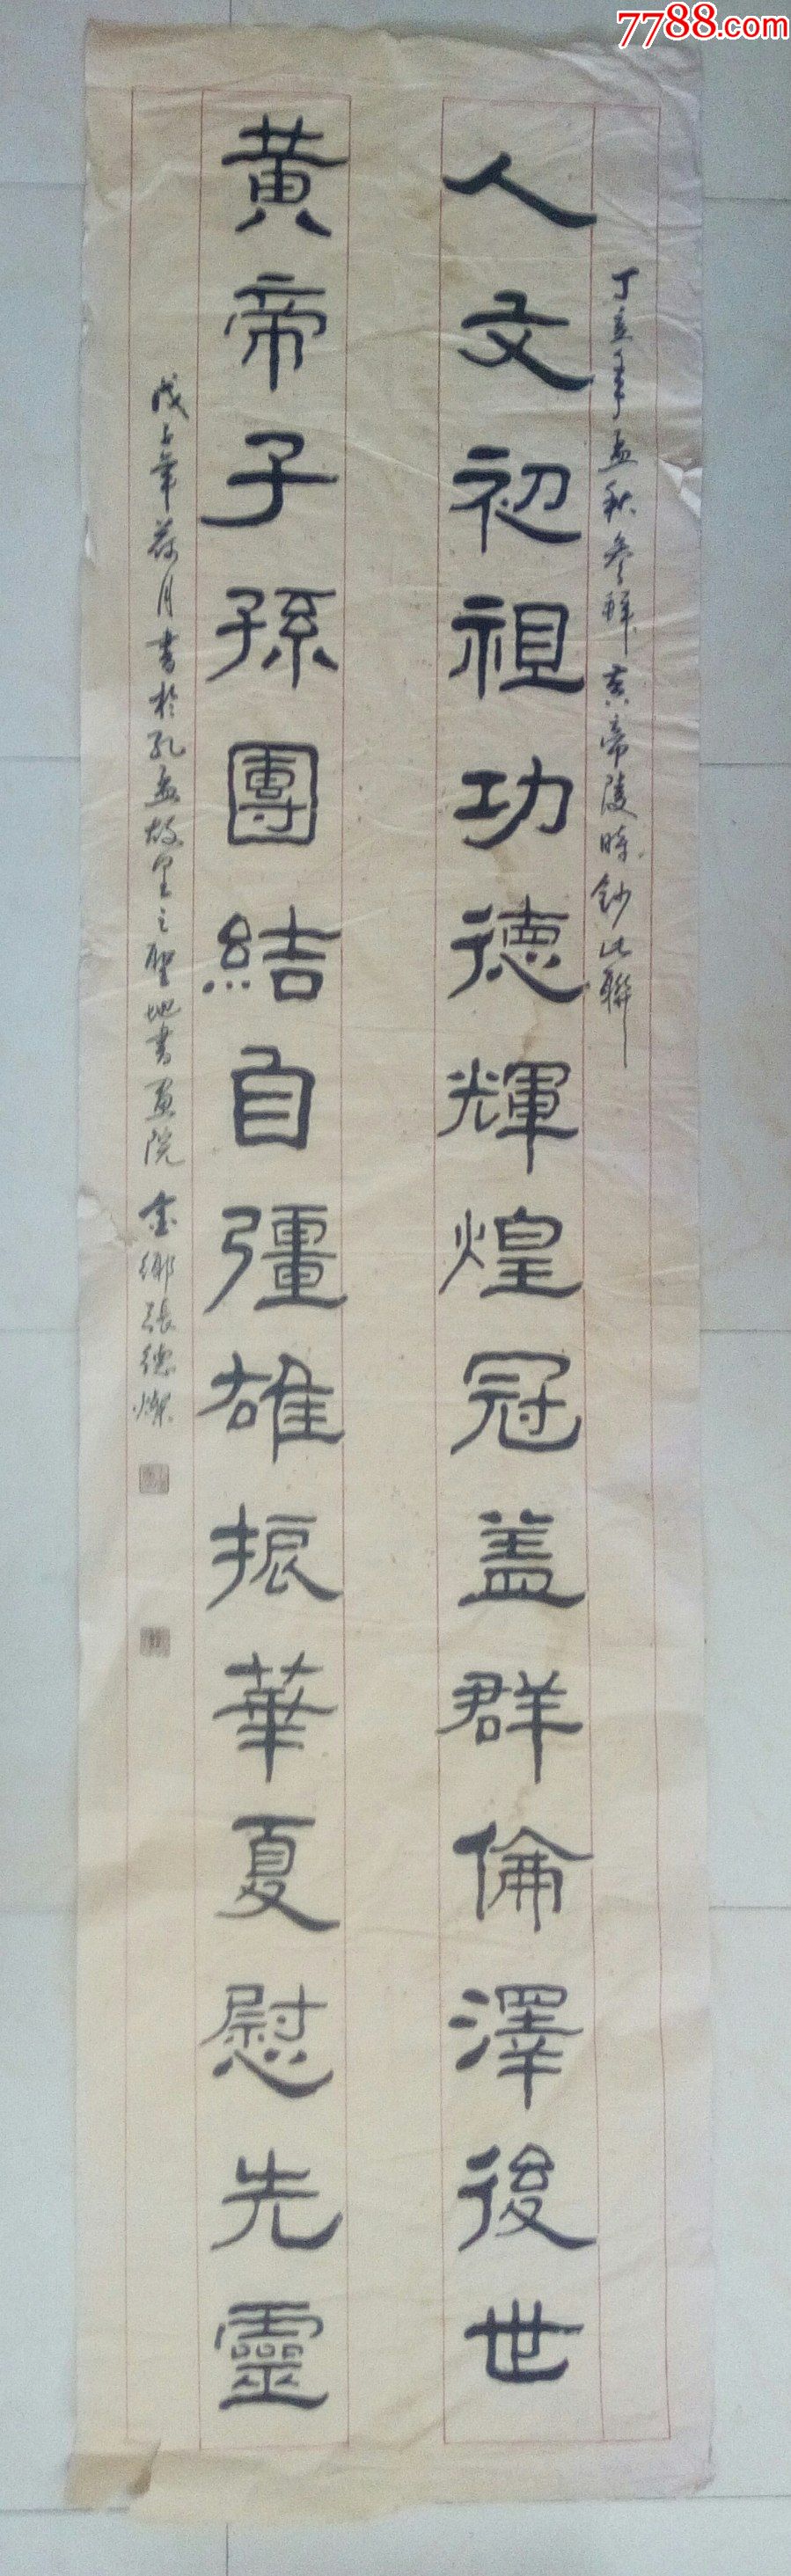 7788.com
丁亥年孟秋參拜黃帝陵時鈔此聯
人文初祖功德輝煌冠盖群倫澤後世
黃帝子孫團結自彊雄振華夏慰先靈
戊子年荷月書於孔孟故里之聖地書画院 金鄉張德燦